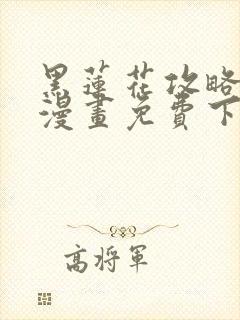 黑蓮花攻略
漫畫免費下
高將軍